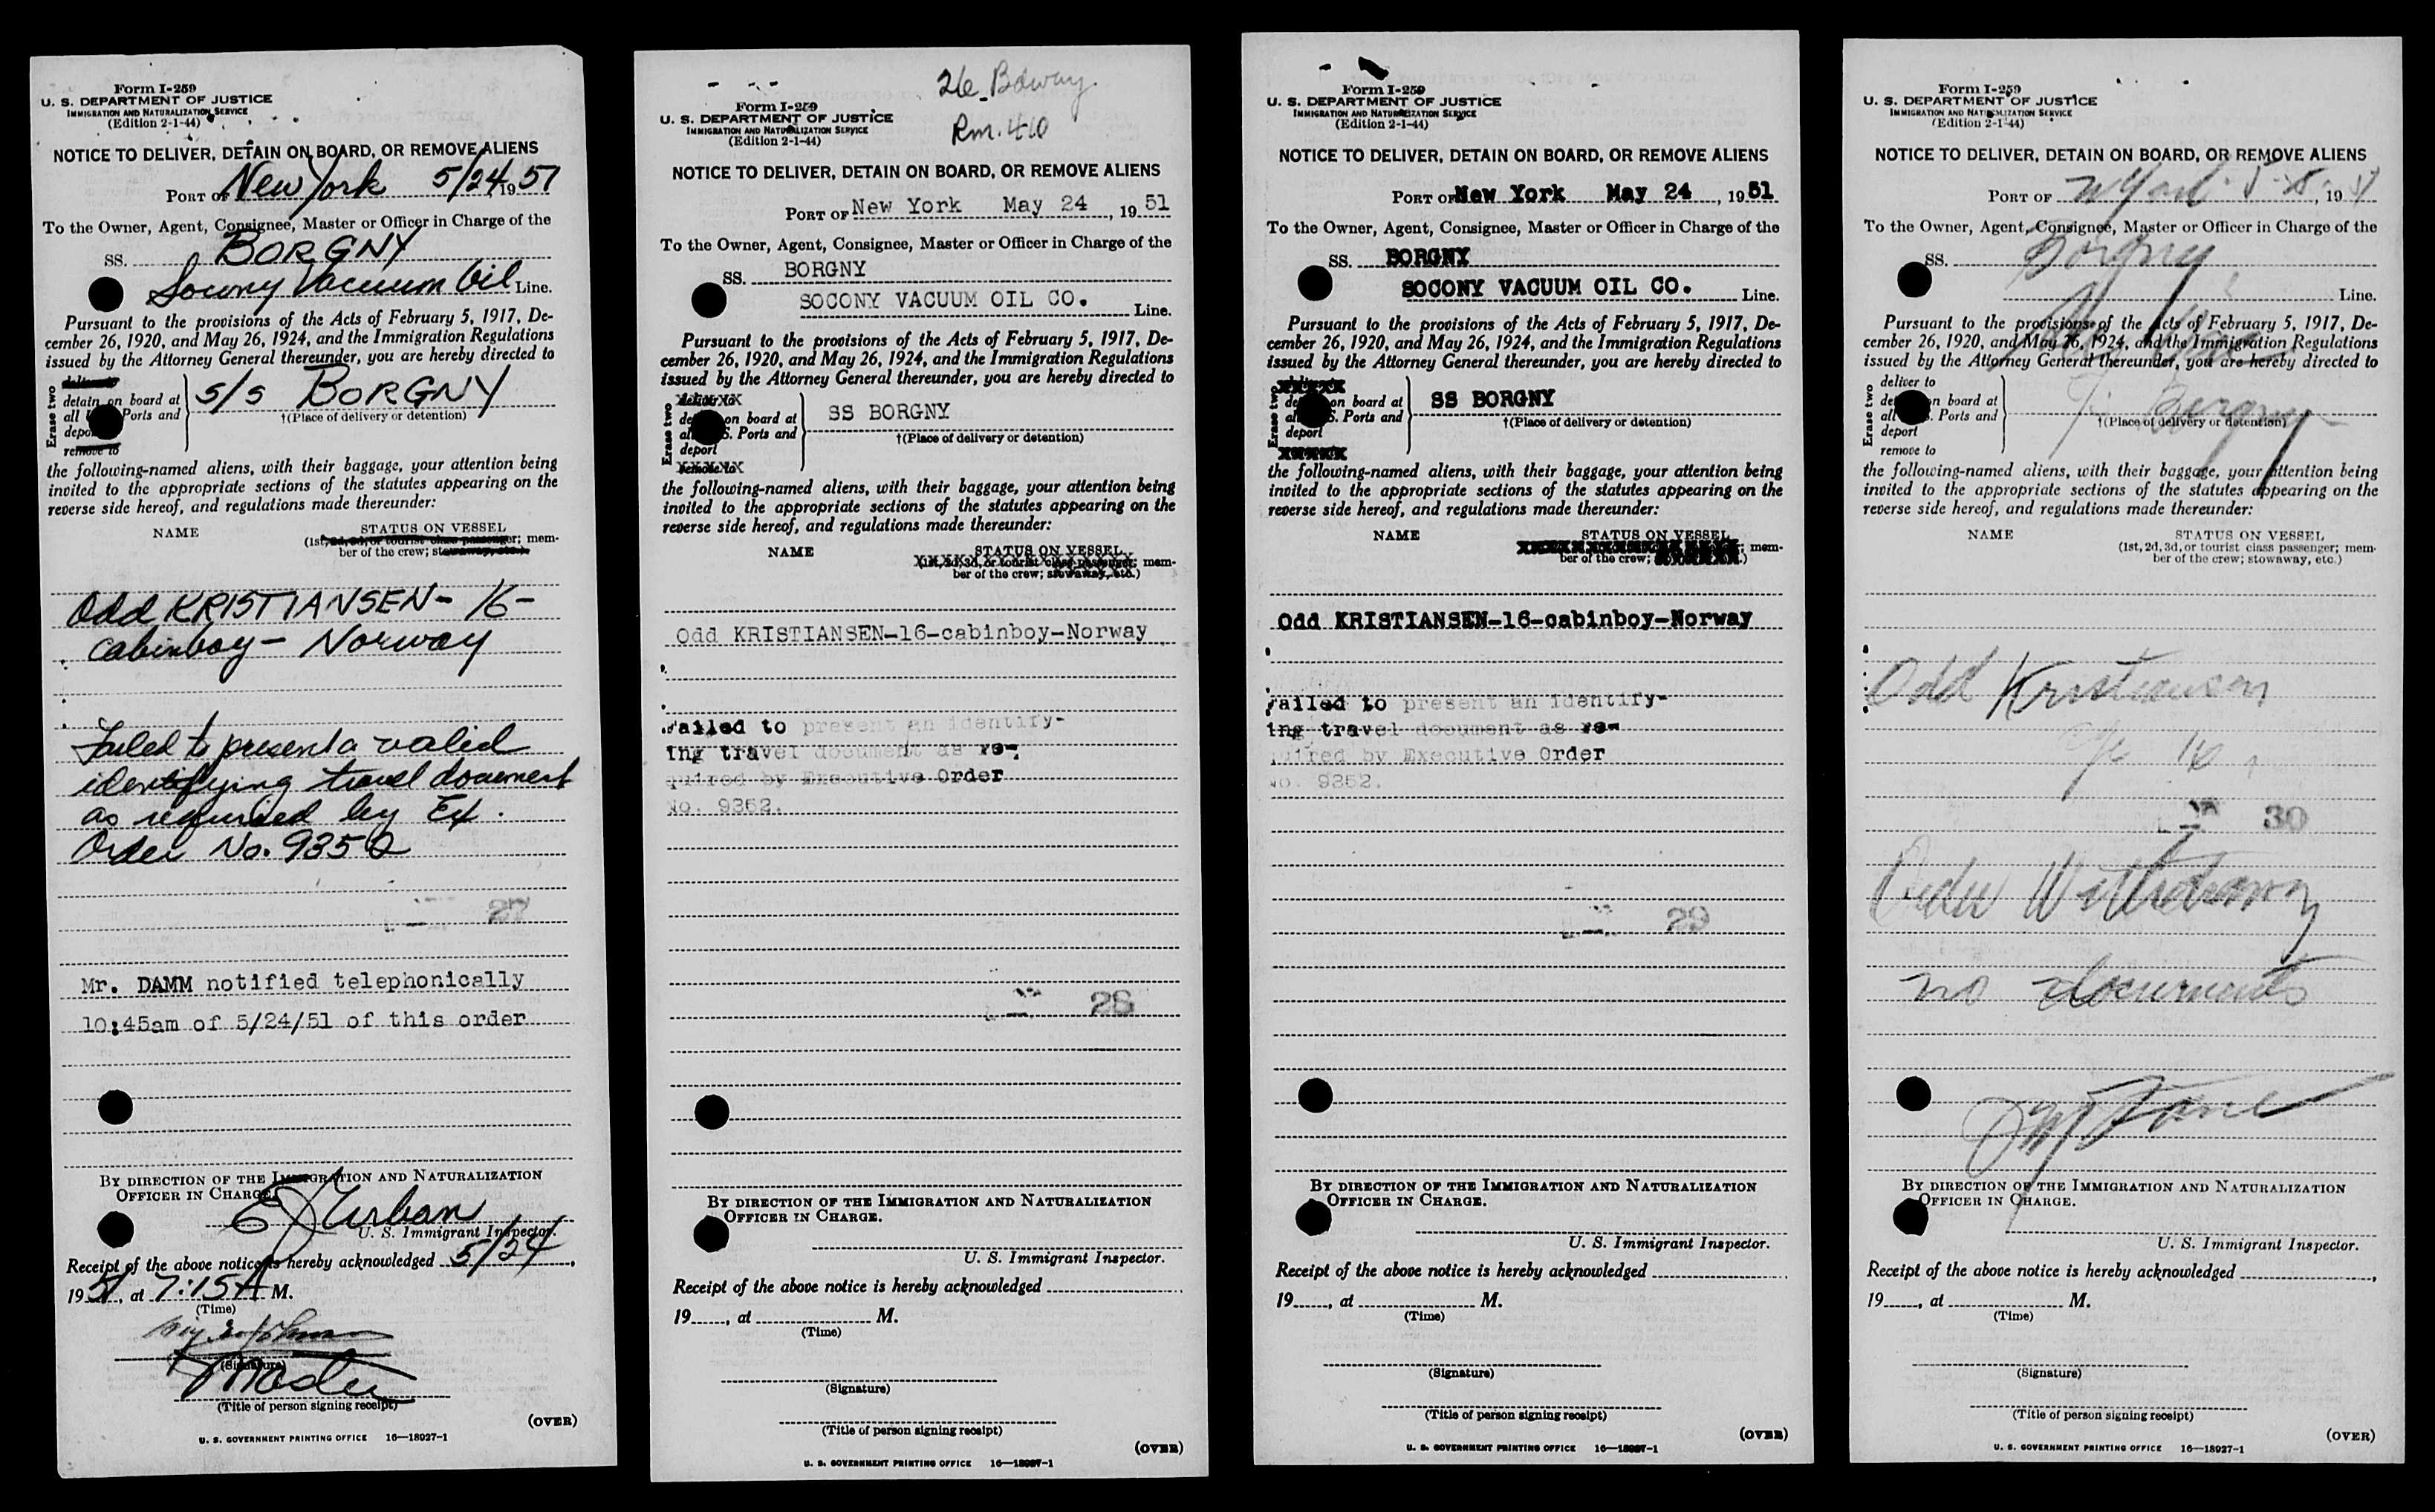 Form I-259
U. S. DEPARTMENT OF JUSTICE
IMMIGRATION AND NATURALIZATION SERVICE
(Edition 2-1-44)
NOTICE TO DELIVER, DETAIN ON BOARD, OR REMOVE ALIENS
PORT OF New York 5/24, 1951
To the Owner, Agent, Consignee, Master or Officer in Charge of the
SS. BORGNY
Socony Vacuum Oil Line.
Pursuant to the provisions of the Acts of February 5, 1917, De-
cember 26, 1920, and May 26, 1924, and the Immigration Regulations
issued by the Attorney General thereunder, you are hereby directed to
Erase two
deliver to
detain on board at
all Ports and
S/S BORGNY
†(Place of delivery or detention)
remove to
the following-named aliens, with their baggage, your attention being
invited to the appropriate sections of the statutes appearing on the
reverse side hereof, and regulations made thereunder:
NAME STATUS ON VESSEL
(1st, 2d, 3d, or tourist class passenger; mem-
ber of the crew; stowaway, etc.)
Odd KRISTIANSEN - 16 -
cabinboy - Norway
Failed to present a valid
identifying travel document
as required by Ex.
Order No. 9352
27
Mr. DAMM notified telephonically
10:45am of 5/24/51 of this order
BY DIRECTION OF THE IMMIGRATION AND NATURALIZATION
OFFICER IN CHARGE.
E J Urban
U. S. Immigrant Inspector.
Receipt of the above notice is hereby acknowledged 5/24,
1951, at 7:15 A M.
(Time)
(Signature)
Master
(Title of person signing receipt)
(OVER)
U. S. GOVERNMENT PRINTING OFFICE 16—18927-1
26 Bdway
Rm. 410
Form I-259
U. S. DEPARTMENT OF JUSTICE
IMMIGRATION AND NATURALIZATION SERVICE
(Edition 2-1-44)
NOTICE TO DELIVER, DETAIN ON BOARD, OR REMOVE ALIENS
PORT OF New York May 24, 1951
To the Owner, Agent, Consignee, Master or Officer in Charge of the
SS. BORGNY
SOCONY VACUUM OIL CO. Line.
Pursuant to the provisions of the Acts of February 5, 1917, De-
cember 26, 1920, and May 26, 1924, and the Immigration Regulations
issued by the Attorney General thereunder, you are hereby directed to
Erase two
on board at
S. Ports and
deport
remove to
SS BORGNY
†(Place of delivery or detention)
the following-named aliens, with their baggage, your attention being
invited to the appropriate sections of the statutes appearing on the
reverse side hereof, and regulations made thereunder:
NAME STATUS ON VESSEL
(1st, 2d, 3d, or tourist class passenger; mem-
ber of the crew; stowaway, etc.)
Odd KRISTIANSEN-16-cabinboy-Norway
Failed to present an identify-
ing travel document as re-
quired by Executive Order
No. 9352.
28
BY DIRECTION OF THE IMMIGRATION AND NATURALIZATION
OFFICER IN CHARGE.
U. S. Immigrant Inspector.
Receipt of the above notice is hereby acknowledged
19, at M.
(Time)
(Signature)
(Title of person signing receipt)
(OVER)
U. S. GOVERNMENT PRINTING OFFICE 16—18927-1
Form I-259
U. S. DEPARTMENT OF JUSTICE
IMMIGRATION AND NATURALIZATION SERVICE
(Edition 2-1-44)
NOTICE TO DELIVER, DETAIN ON BOARD, OR REMOVE ALIENS
PORT OF New York May 24, 1951
To the Owner, Agent, Consignee, Master or Officer in Charge of the
SS. BORGNY
SOCONY VACUUM OIL CO. Line.
Pursuant to the provisions of the Acts of February 5, 1917, De-
cember 26, 1920, and May 26, 1924, and the Immigration Regulations
issued by the Attorney General thereunder, you are hereby directed to
Erase two
on board at
S. Ports and
deport
SS BORGNY
†(Place of delivery or detention)
the following-named aliens, with their baggage, your attention being
invited to the appropriate sections of the statutes appearing on the
reverse side hereof, and regulations made thereunder:
NAME STATUS ON VESSEL
; mem-
ber of the crew;
Odd KRISTIANSEN-16-cabinboy-Norway
Failed to present an identify-
ing travel document as re-
quired by Executive Order
No. 9352.
29
BY DIRECTION OF THE IMMIGRATION AND NATURALIZATION
OFFICER IN CHARGE.
U. S. Immigrant Inspector.
Receipt of the above notice is hereby acknowledged
19, at M.
(Time)
(Signature)
(Title of person signing receipt)
(OVER)
U. S. GOVERNMENT PRINTING OFFICE 16—18927-1
Form I-259
U. S. DEPARTMENT OF JUSTICE
IMMIGRATION AND NATURALIZATION SERVICE
(Edition 2-1-44)
NOTICE TO DELIVER, DETAIN ON BOARD, OR REMOVE ALIENS
PORT OF N York, 1951
To the Owner, Agent, Consignee, Master or Officer in Charge of the
SS. Borgny
Line.
Pursuant to the provisions of the Acts of February 5, 1917, De-
cember 26, 1920, and May 26, 1924, and the Immigration Regulations
issued by the Attorney General thereunder, you are hereby directed to
Erase two
deliver to
on board at
S. Ports and
deport
remove to
Borgny
†(Place of delivery or detention)
the following-named aliens, with their baggage, your attention being
invited to the appropriate sections of the statutes appearing on the
reverse side hereof, and regulations made thereunder:
NAME STATUS ON VESSEL
(1st, 2d, 3d, or tourist class passenger; mem-
ber of the crew; stowaway, etc.)
Odd Kristiansen
16
30
Order Withdrawn
no documents
BY DIRECTION OF THE IMMIGRATION AND NATURALIZATION
OFFICER IN CHARGE.
U. S. Immigrant Inspector.
Receipt of the above notice is hereby acknowledged
19, at M.
(Time)
(Signature)
(Title of person signing receipt)
(OVER)
U. S. GOVERNMENT PRINTING OFFICE 16—18927-1